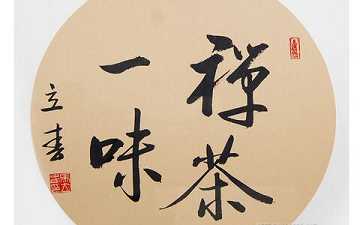 禅茶
一味
立春